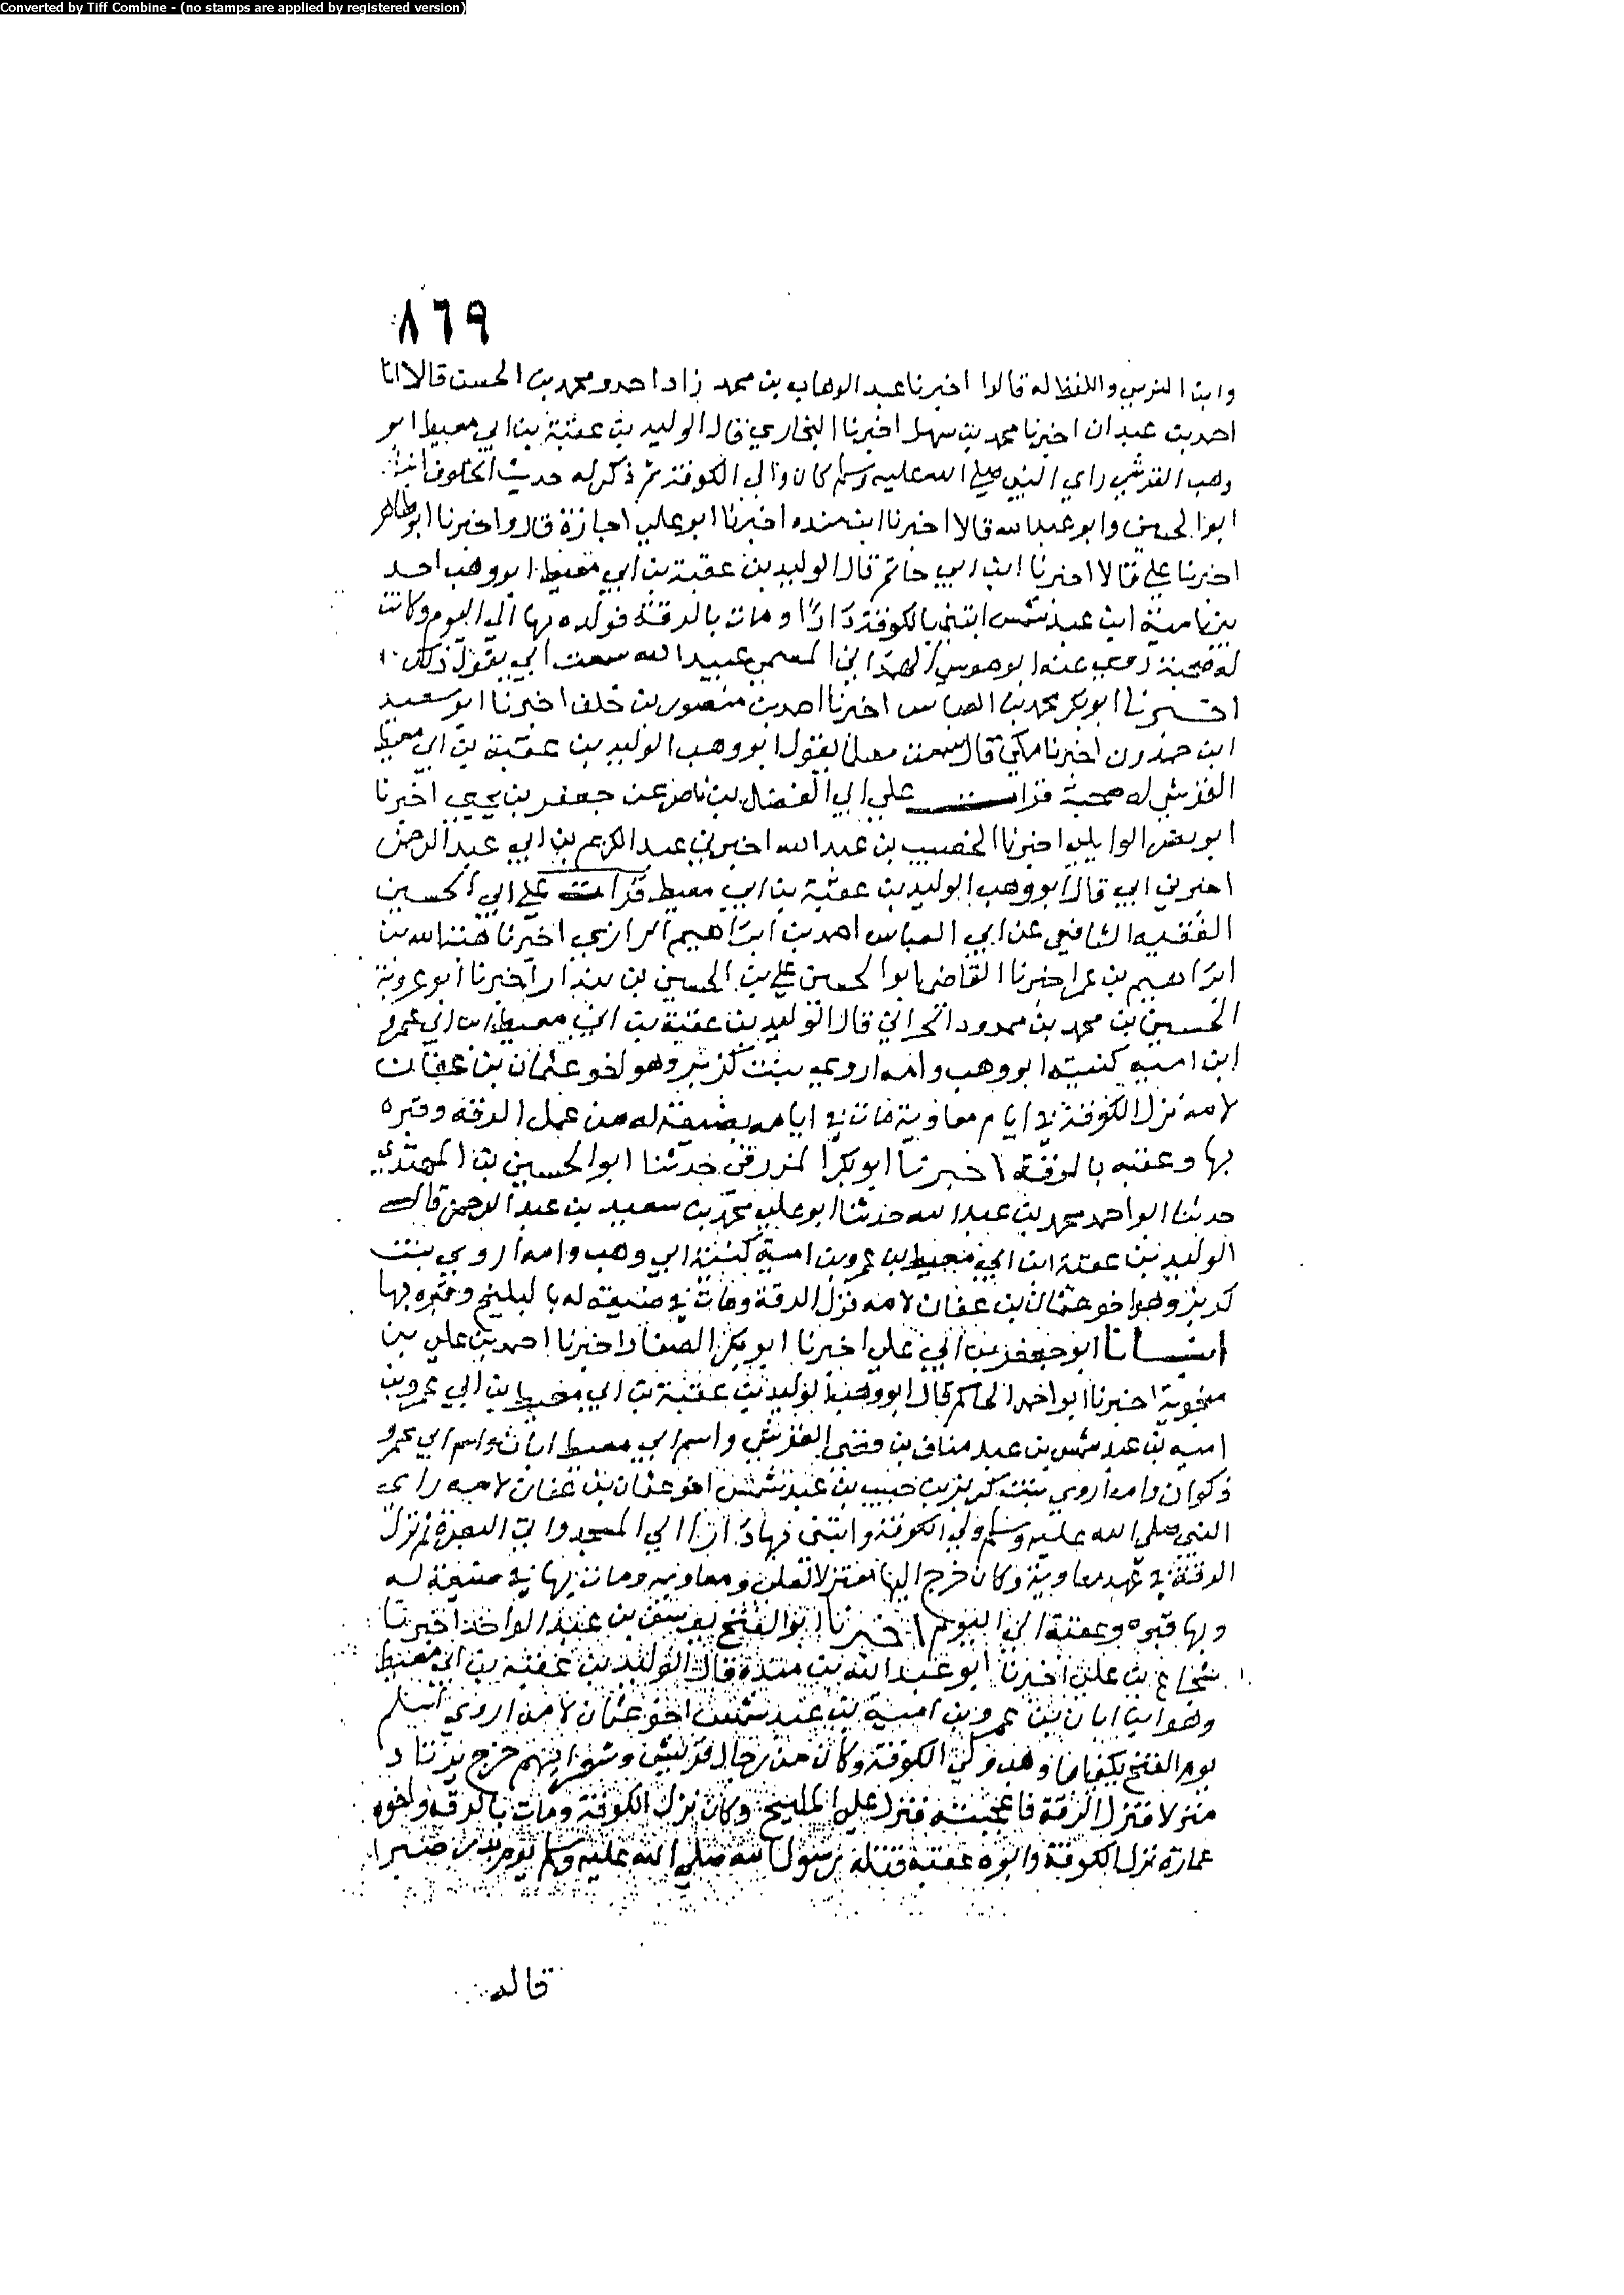 Converted by Tiff Combine - (no stamps are applied by registered version)
٨٦٩
وابن النرسي واللفظ له قالوا اخبرنا عبد الوهاب بن محمد زاد احمد ومحمد بن الحسن قالا انا
احمد بن عبدان اخبرنا محمد بن سهل اخبرنا البخاري قال الوليد بن عقبة بن ابي معيط ابو
وهب القرشي راي النبي صلى الله عليه وسلم كان والي الكوفة ثم ذكر له حديث الخلوق
ابو الحسين وابو عبد الله قالا اخبرنا ابن منده اخبرنا ابو علي اجازة قال واخبرنا ابو طاهر
اخبرنا علي قالا اخبرنا ابن ابي حاتم قال الوليد بن عقبة بن ابي معيط ابو وهب احد
بني امية ابن عبد شمس ابتنى بالكوفة دارا ومات بالرقة فولده بها الى اليوم وكانت
له صحبة روى عنه ابو موسى الهمداني المسمى عبيد الله سمعت ابي يقول ذلك
اخبرنا ابو بكر محمد بن العباس اخبرنا احمد بن منصور بن خلف اخبرنا ابو سعيد
ابن حمدون اخبرنا مكي قال سمعت مسلما يقول ابو وهب الوليد بن عقبة بن ابي معيط
القرشي له صحبة قرات على ابي الفضل بن ناصر عن جعفر بن يحيى اخبرنا
ابو نصر الوايلي اخبرنا الخصيب بن عبد الله اخبرني عبد الكريم بن ابي عبد الرحمن
اخبرني ابي قال ابو وهب الوليد بن عقبة بن ابي معيط قرات على ابي الحسين
الفقيه الشافعي عن ابي العباس احمد بن ابراهيم الرازي اخبرنا هبة الله بن
ابراهيم بن عمر اخبرنا القاضي ابو الحسن علي بن الحسين بن بندار اخبرنا ابو عروبة
الحسين بن محمد بن مودود الحراني قال الوليد بن عقبة بن ابي معيط ابن ابي عمرو
ابن امية كنيته ابو وهب وامه اروى بنت كريز وهو اخو عثمان بن عفان
لامه نزل الكوفة في ايام معاوية مات في ايامه بضيعة له من عمل الرقة وقبره
بها وعقبه بالرقة اخبرنا ابو بكر المزرفي حدثنا ابو الحسين بن المهتدي
حدثنا ابو احمد محمد بن عبد الله حدثنا ابو علي محمد بن سعيد بن عبد الرحمن قال
الوليد بن عقبة ابن ابي معيط بن عمرو بن امية كنيته ابي وهب وامه اروى بنت
كريز وهو اخو عثمان بن عفان لامه نزل الرقة ومات في ضيعته له بالبليخ وقبره بها
انبانا ابو جعفر بن ابي علي اخبرنا ابو بكر الصفار اخبرنا احمد بن علي بن
منجوية اخبرنا ابو احمد الحاكم قال ابو وهب الوليد بن عقبة بن ابي معيط بن ابي عمرو بن
امية بن عبد شمس بن عبد مناف بن قصي القرشي واسم ابي معيط ابان واسم ابي عمرو
ذكوان وامه اروى بنت كريز بن حبيب بن عبد شمس اخو عثمان بن عفان لامه راى
النبي صلى الله عليه وسلم ولي الكوفة وابتنى فيها دارا الى المسجد والي البصرة ثم نزل
الرقة في عهد معاوية وكان خرج اليها معتزلا لعلي ومعاوية ومات بها في ضيعة له
وبها قبره وعقبه الى اليوم اخبرنا ابو الفتح يوسف بن عبد الواحد اخبرنا
شجاع بن علي اخبرنا ابو عبد الله بن منده قال الوليد بن عقبة بن ابي معيط
وهو ابن ابان بن عمرو بن امية بن عبد شمس اخو عثمان لامه اروى اسلم
يوم الفتح يكنى ابا وهب ولي الكوفة وكان من رجال قريش وشعرائهم خرج يرتاد
منزلا فنزل الرقة فاعجبته فنزل على البليخ وكان نزل الكوفة ومات بالرقة واخوه
عمارة نزل الكوفة وابوه عقبة قتله رسول الله صلى الله عليه وسلم يوم بدر صبرا
قال